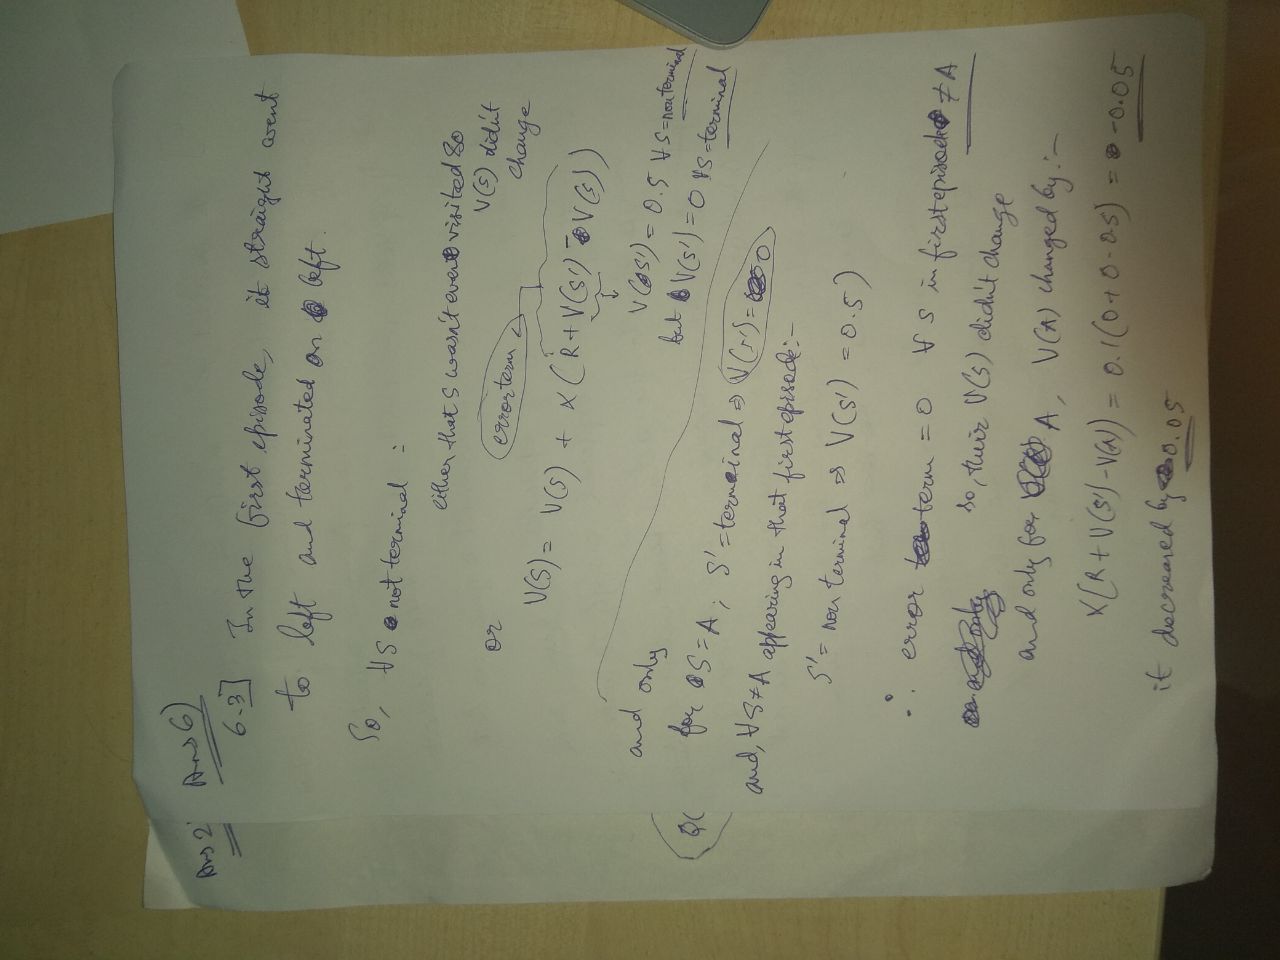 Ans 2 Ans 6)
6.3] In the first episode, it straight went
to left and terminated on left.
So, ∀S not terminal :
either that S wasn't even visited so
V(S) didn't
change
or
error term
V(S) = V(S) + α(R + V(S') - V(S))
V(S') = 0.5 ∀S = non terminal
but V(S') = 0 ∀S = terminal
and only
for S = A ; S' = terminal ⇒ V(S') = 0
and, ∀S ≠ A appearing in that first episode:-
S' = non terminal ⇒ V(S') = 0.5)
∴ error term = 0 ∀ S in first episode ≠ A
so, their V(S) didn't change
and only for A, V(A) changed by:-
α[R + V(S') - V(A)) = 0.1(0+0-0.5) = -0.05
it decreared by 0.05